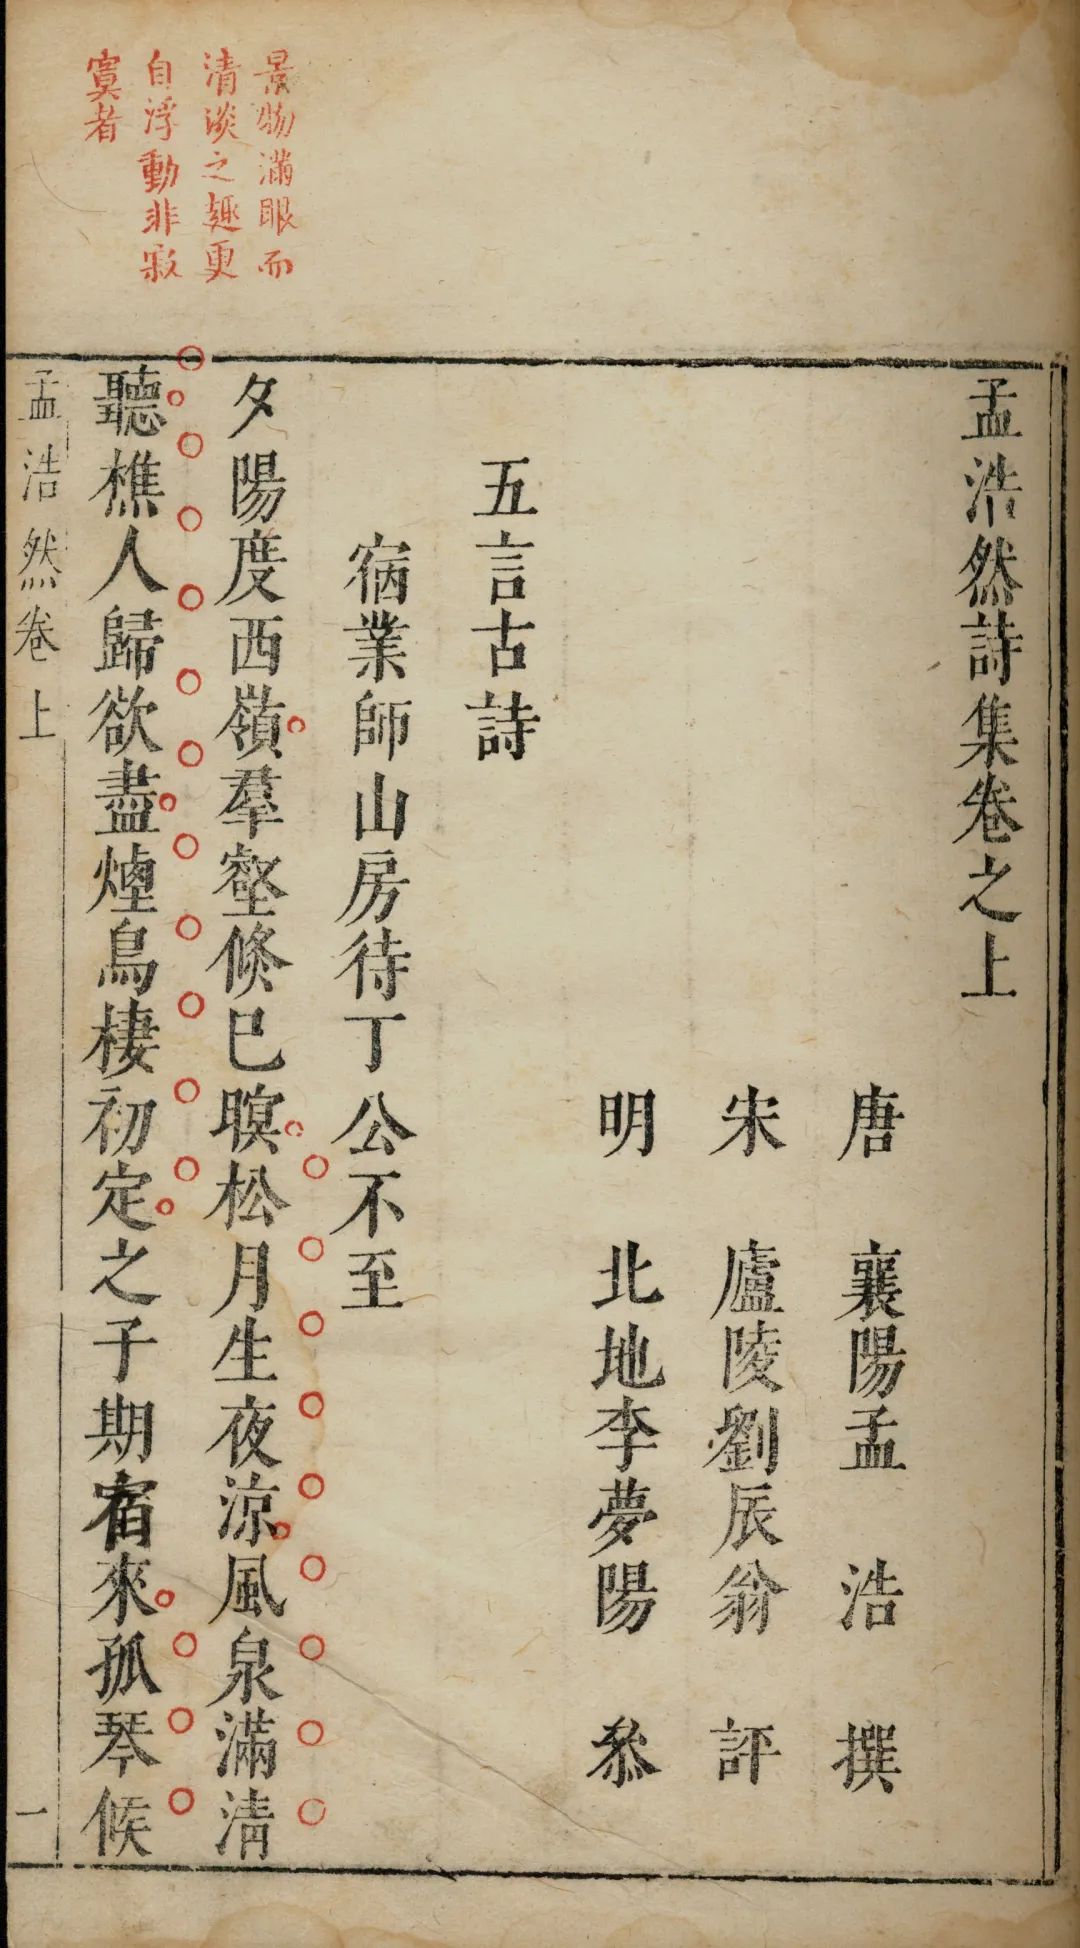 景物滿眼而
清淡之趣更
自浮動非寂
寞者
孟浩然詩集卷之上
唐 襄陽孟 浩 撰
宋 廬陵劉辰翁 評
明 北地李夢陽 叅
五言古詩
宿業師山房待丁公不至
夕陽度西嶺羣壑倏巳暝松月生夜涼風泉滿清
聽樵人歸欲盡煙鳥棲初定之子期宿來孤琴候
孟浩然卷上
一